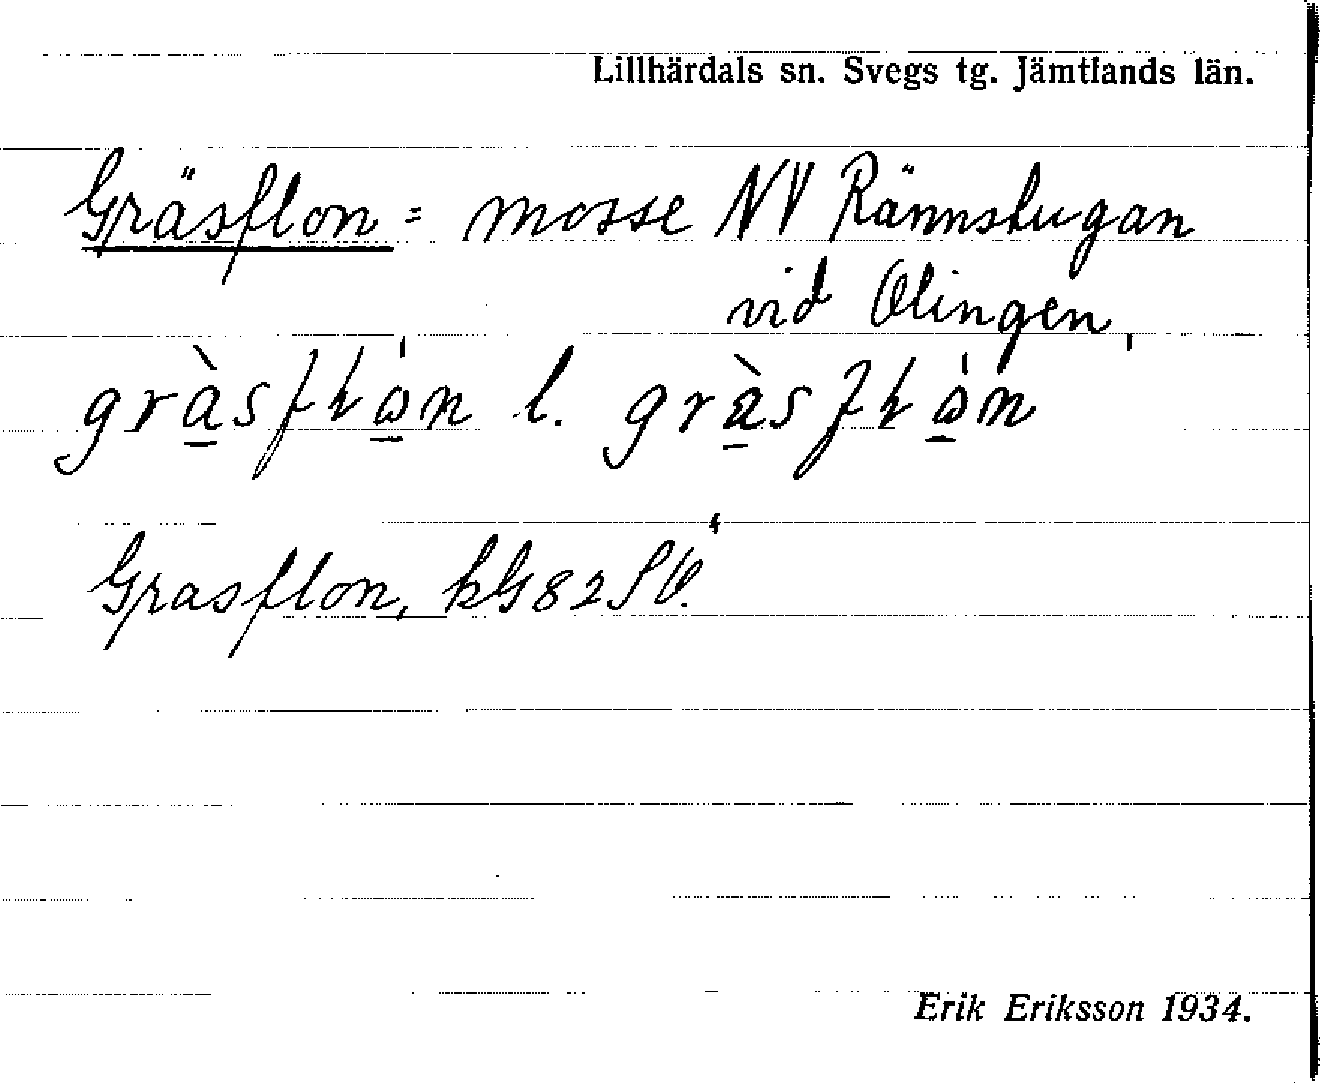 Lillhärdals sn. Svegs tg. Jämtlands län.
Gräsflon = mosse NV Rännstugan
vid Olingen,
l.
Grasflon, kG 82 SV.
Erik Eriksson 1934.